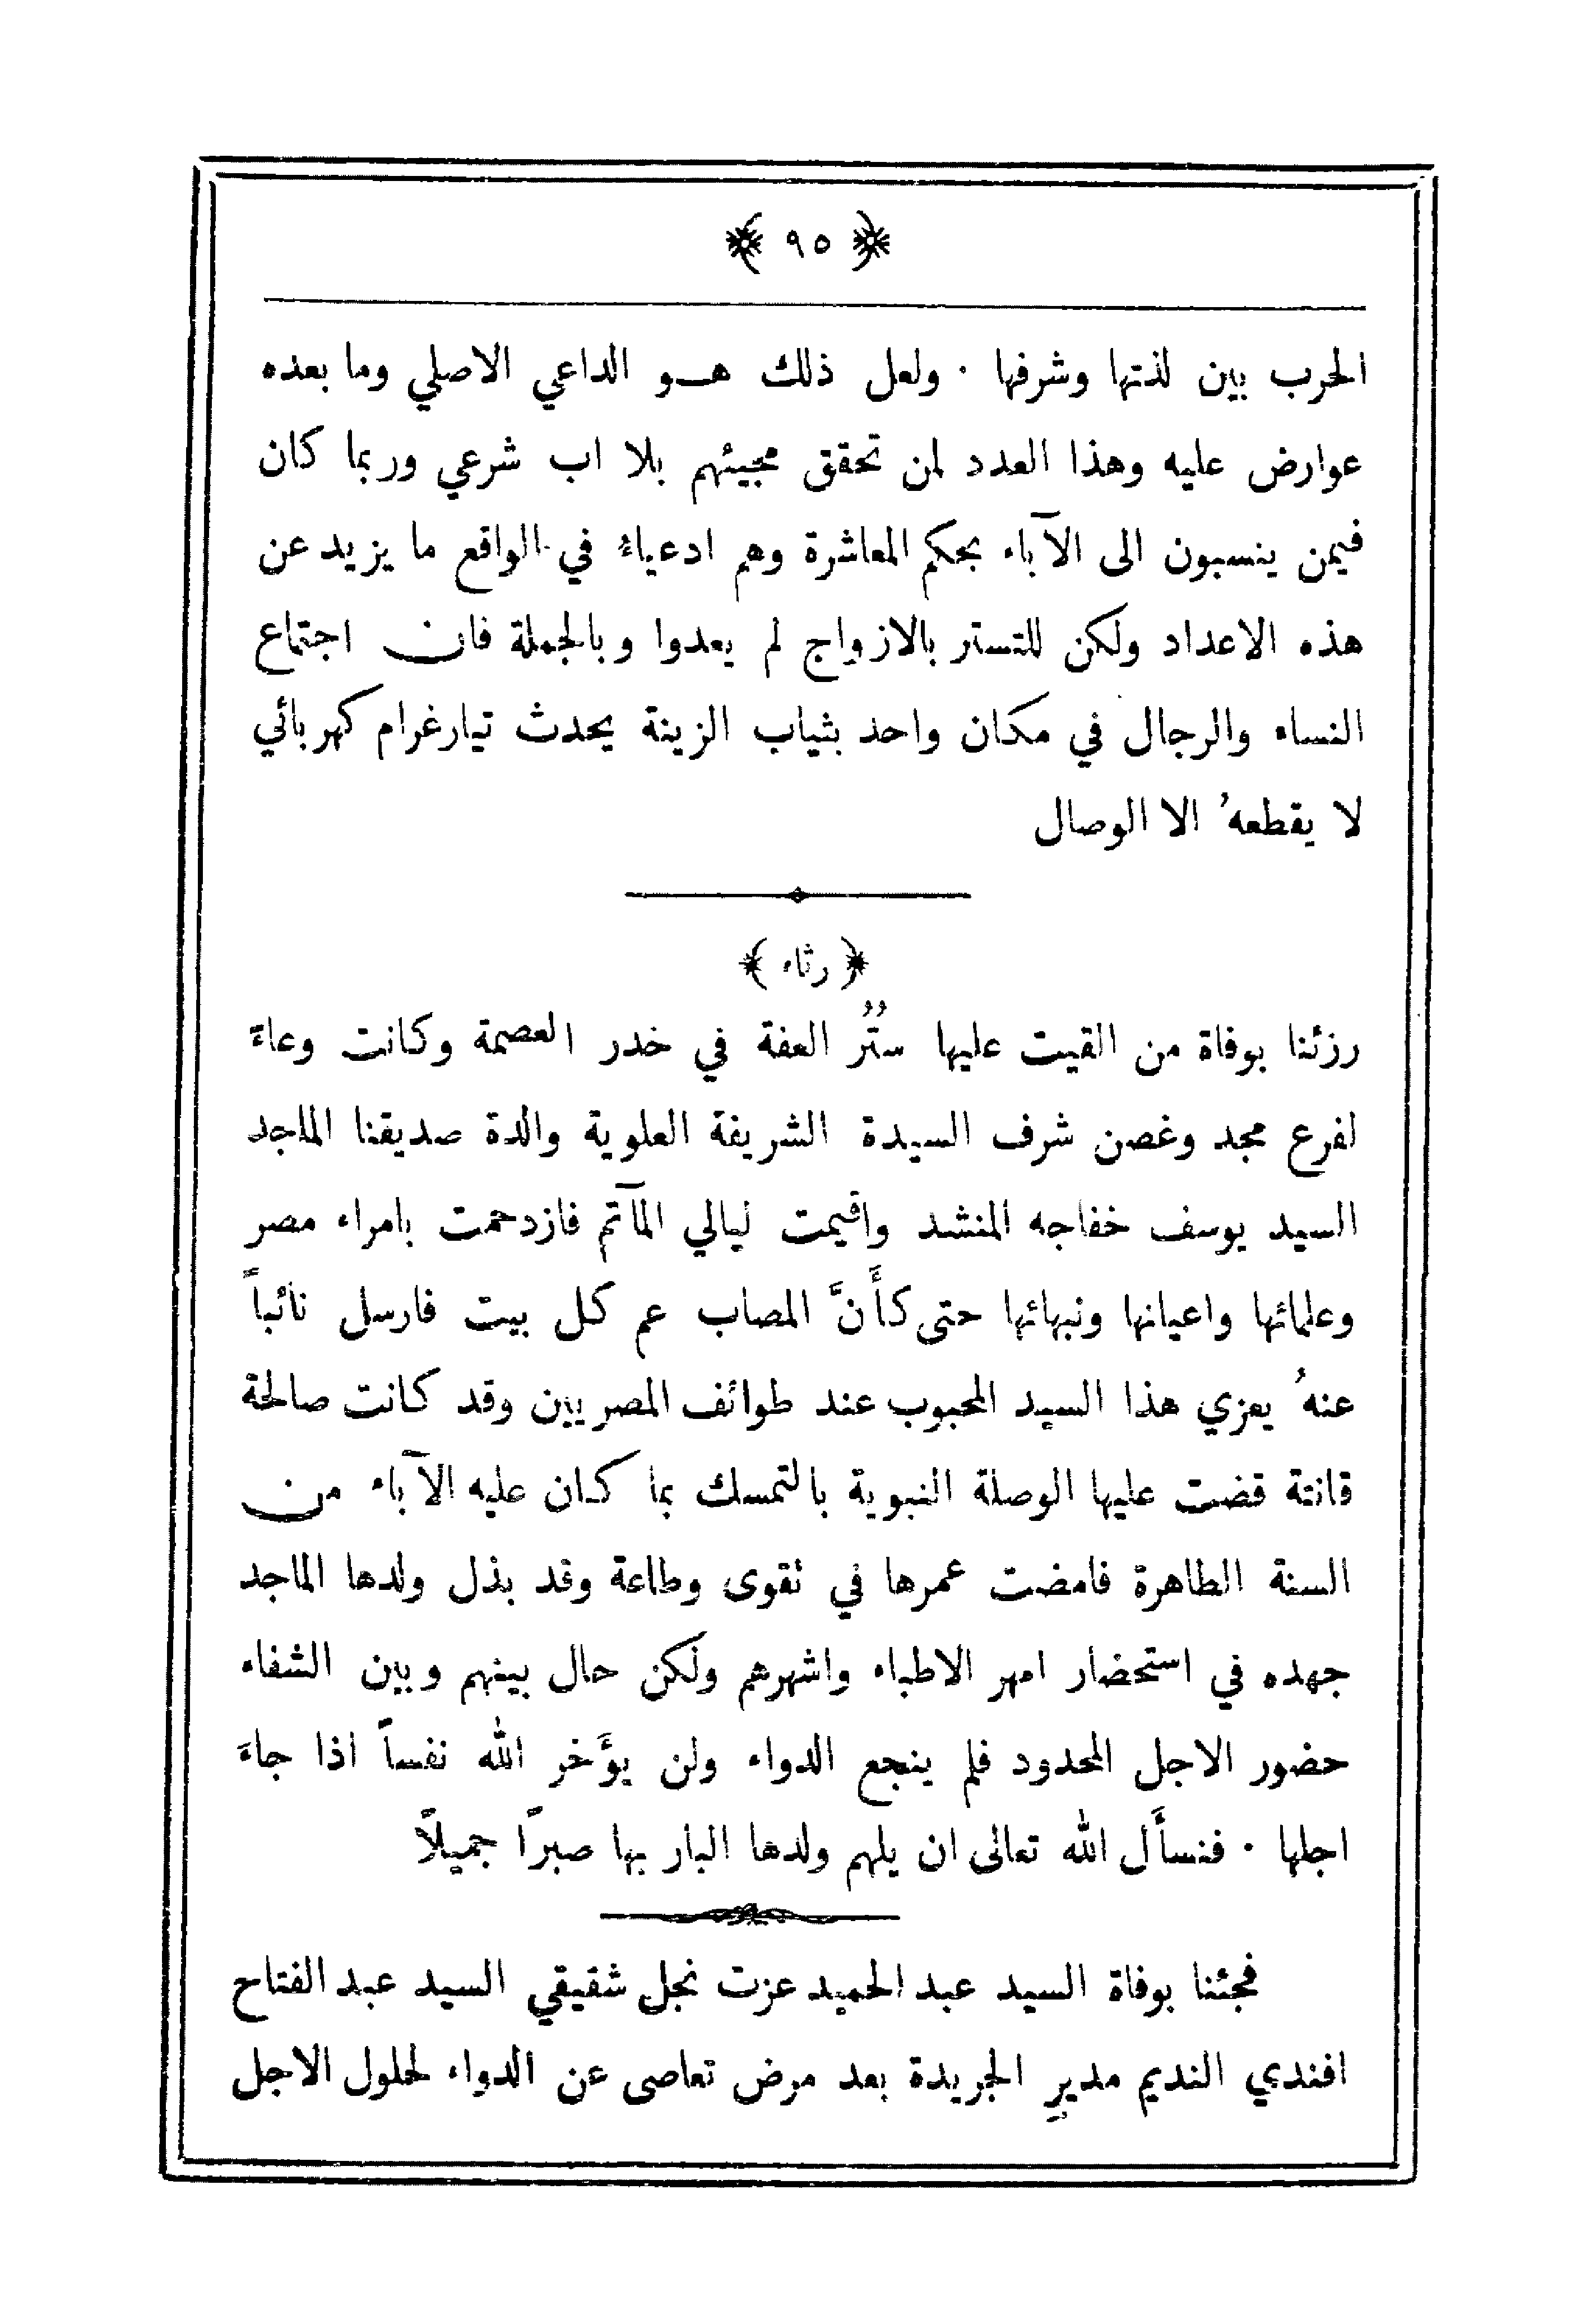 ﴿ ٩٥ ﴾
الحرب بين لذتها وشرفها · ولعل ذلك هو الداعي الاصلي وما بعده
عوارض عليه وهذا العدد لمن تحقق مجيئهم بلا اب شرعي وربما كان
فيمن ينسبون الى الآباء بحكم المعاشرة وهم ادعياءُ في الواقع ما يزيد عن
هذه الاعداد ولكن للتستر بالازواج لم يعدوا وبالجملة فان اجتماع
النساء والرجال في مكان واحد بثياب الزينة يحدث تيار غرام كهربائي
لا يقطعهُ الا الوصال
﴿ رثاء ﴾
رزئنا بوفاة من القيت عليها سُتُر العفة في خدر العصمة وكانت وعاءً
لفرع مجد وغصن شرف السيدة الشريفة العلوية والدة صديقنا الماجد
السيد يوسف خفاجه المنشد واقيمت ليالي المآتم فازدحمت بامراء مصر
وعلمائها واعيانها ونبهائها حتى كأَنَّ المصاب عم كل بيت فارسل نائباً
عنهُ يعزي هذا السيد المحبوب عند طوائف المصريين وقد كانت صالحة
قانتة قضت عليها الوصلة النبوية بالتمسك بما كان عليه الآباء من
السنة الطاهرة فامضت عمرها في تقوى وطاعة وقد بذل ولدها الماجد
جهده في استحضار امهر الاطباء واشهرهم ولكن حال بينهم وبين الشفاء
حضور الاجل المحدود فلم ينجع الدواء ولن يؤَخر الله نفساً اذا جاءَ
اجلها · فنسأَل الله تعالى ان يلهم ولدها البار بها صبرًا جميلاً
فجئنا بوفاة السيد عبد الحميد عزت نجل شقيقي السيد عبد الفتاح
افندي النديم مديرِ الجريدة بعد مرض تعاصى عن الدواء لحلول الاجل